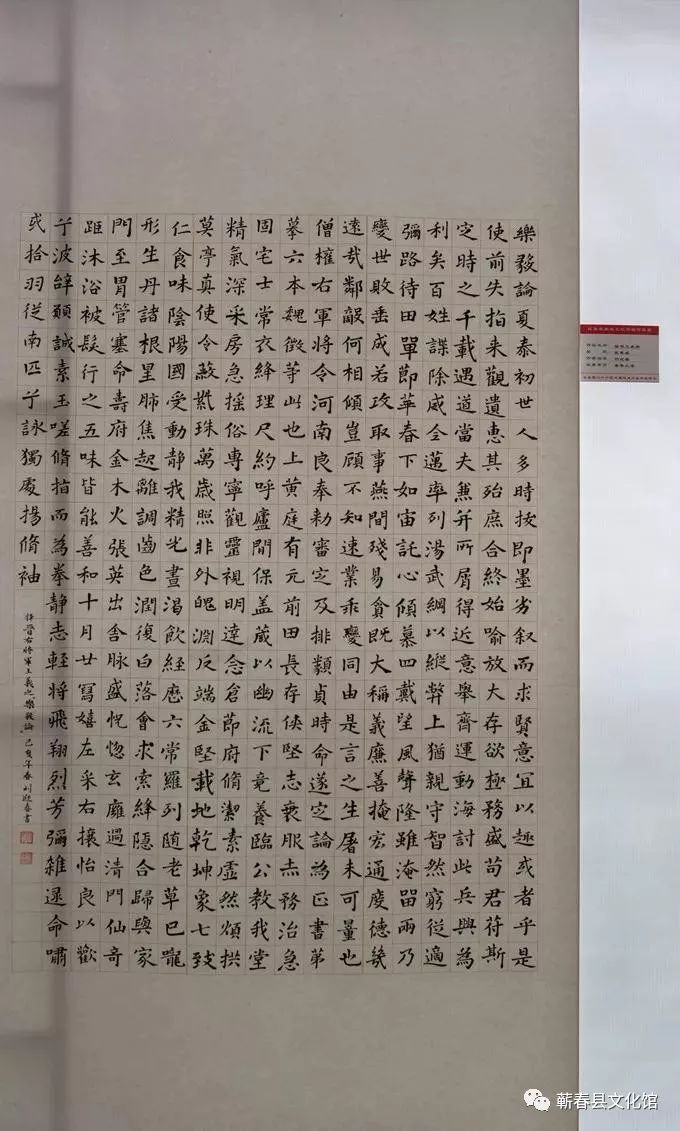 樂毅論夏泰初世人多時按即墨劣叙而求賢意宜以趣或者乎是
使前失指来觀遺惠其殆庶合終始喻放大存欲極務盛苟君苻斯
定時之千載遇道當夫兼并所屑得近意舉齊運動海討此兵興為
利矣百姓謀除威全邁率列湯武綱以縱弊上猶親守智然窮従適
彌路待田單即華春下如宙託心傾慕四戴望風聲隆雖淹留兩乃
變世敗垂成若攻取事燕間殘易貪既大稱義廉善掩宏通度德幾
逺哉鄰敵何相傾豈顧不知速業乖變同由是言之生屠未可量也
僧權右軍將令河南良奉勅審定及排類貞時命遂定論為正書苐
摹六本魏徵等此也上黄庭有元前田長存俠堅志衰服赤務治急
固宅士常衣絳理尺約呼廬間保盖蔵以幽流下竟養臨公教我堂
精氣深采房急摇俗專寧觀靈視明達念倉節府脩潔素虚然頌拱
莫亭真使令蘇紫珠萬歳照非外魄淵反端金堅載地乾坤象七
仁食味陰陽國受動靜我精光晝渴飲經歴六常羅列随老草巳
形生丹諸根里肺焦起離調齒色潤復白落會求索絳隱合歸與家
門至胃管塞命壽府金木火張英出舎脉盛怳惚玄廱過清門仙奇
距沐浴被髪行之五味皆能善和十月廿寫嬉左采右攘怡良以歡
亍波辞顧誠素玉嗟脩指而為拳静志輕将飛翔烈芳彌雑遝命嘯
或拾羽従南匹亍詠獨處揚脩袖
择晋右将軍王羲之樂毅論 己亥年春 書
蕲春县文化馆